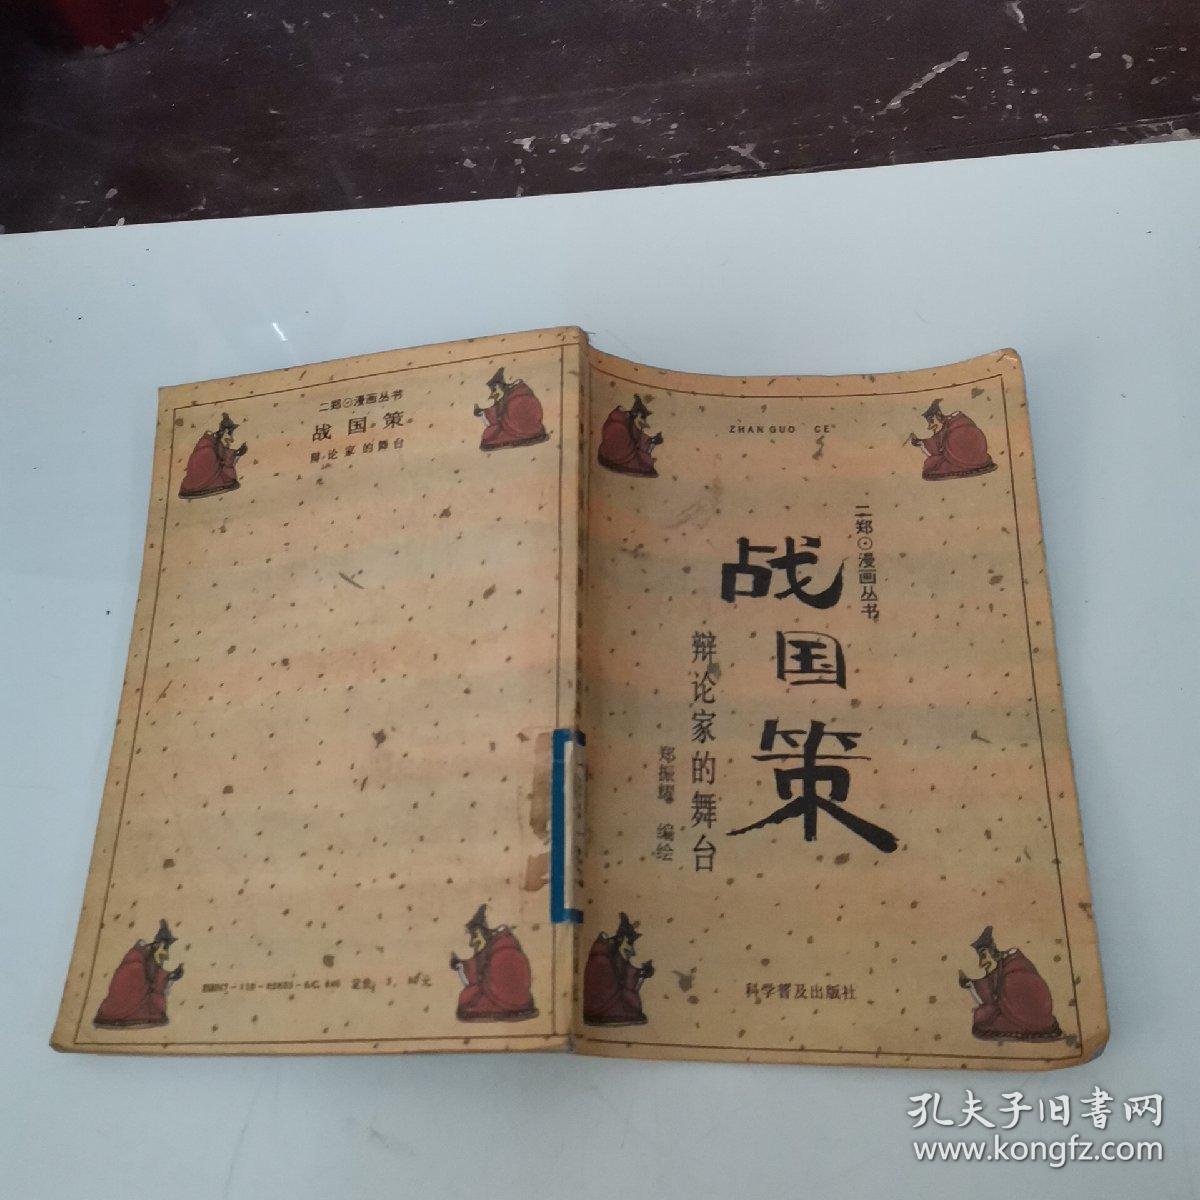 二郑⊙漫画丛书
战国策
辩论家的舞台
ZHAN GUO CE
二郑⊙漫画丛书
战国策
辩论家的舞台
郑振耀 编绘
科学普及出版社
孔夫子旧书网
www.kongfz.com